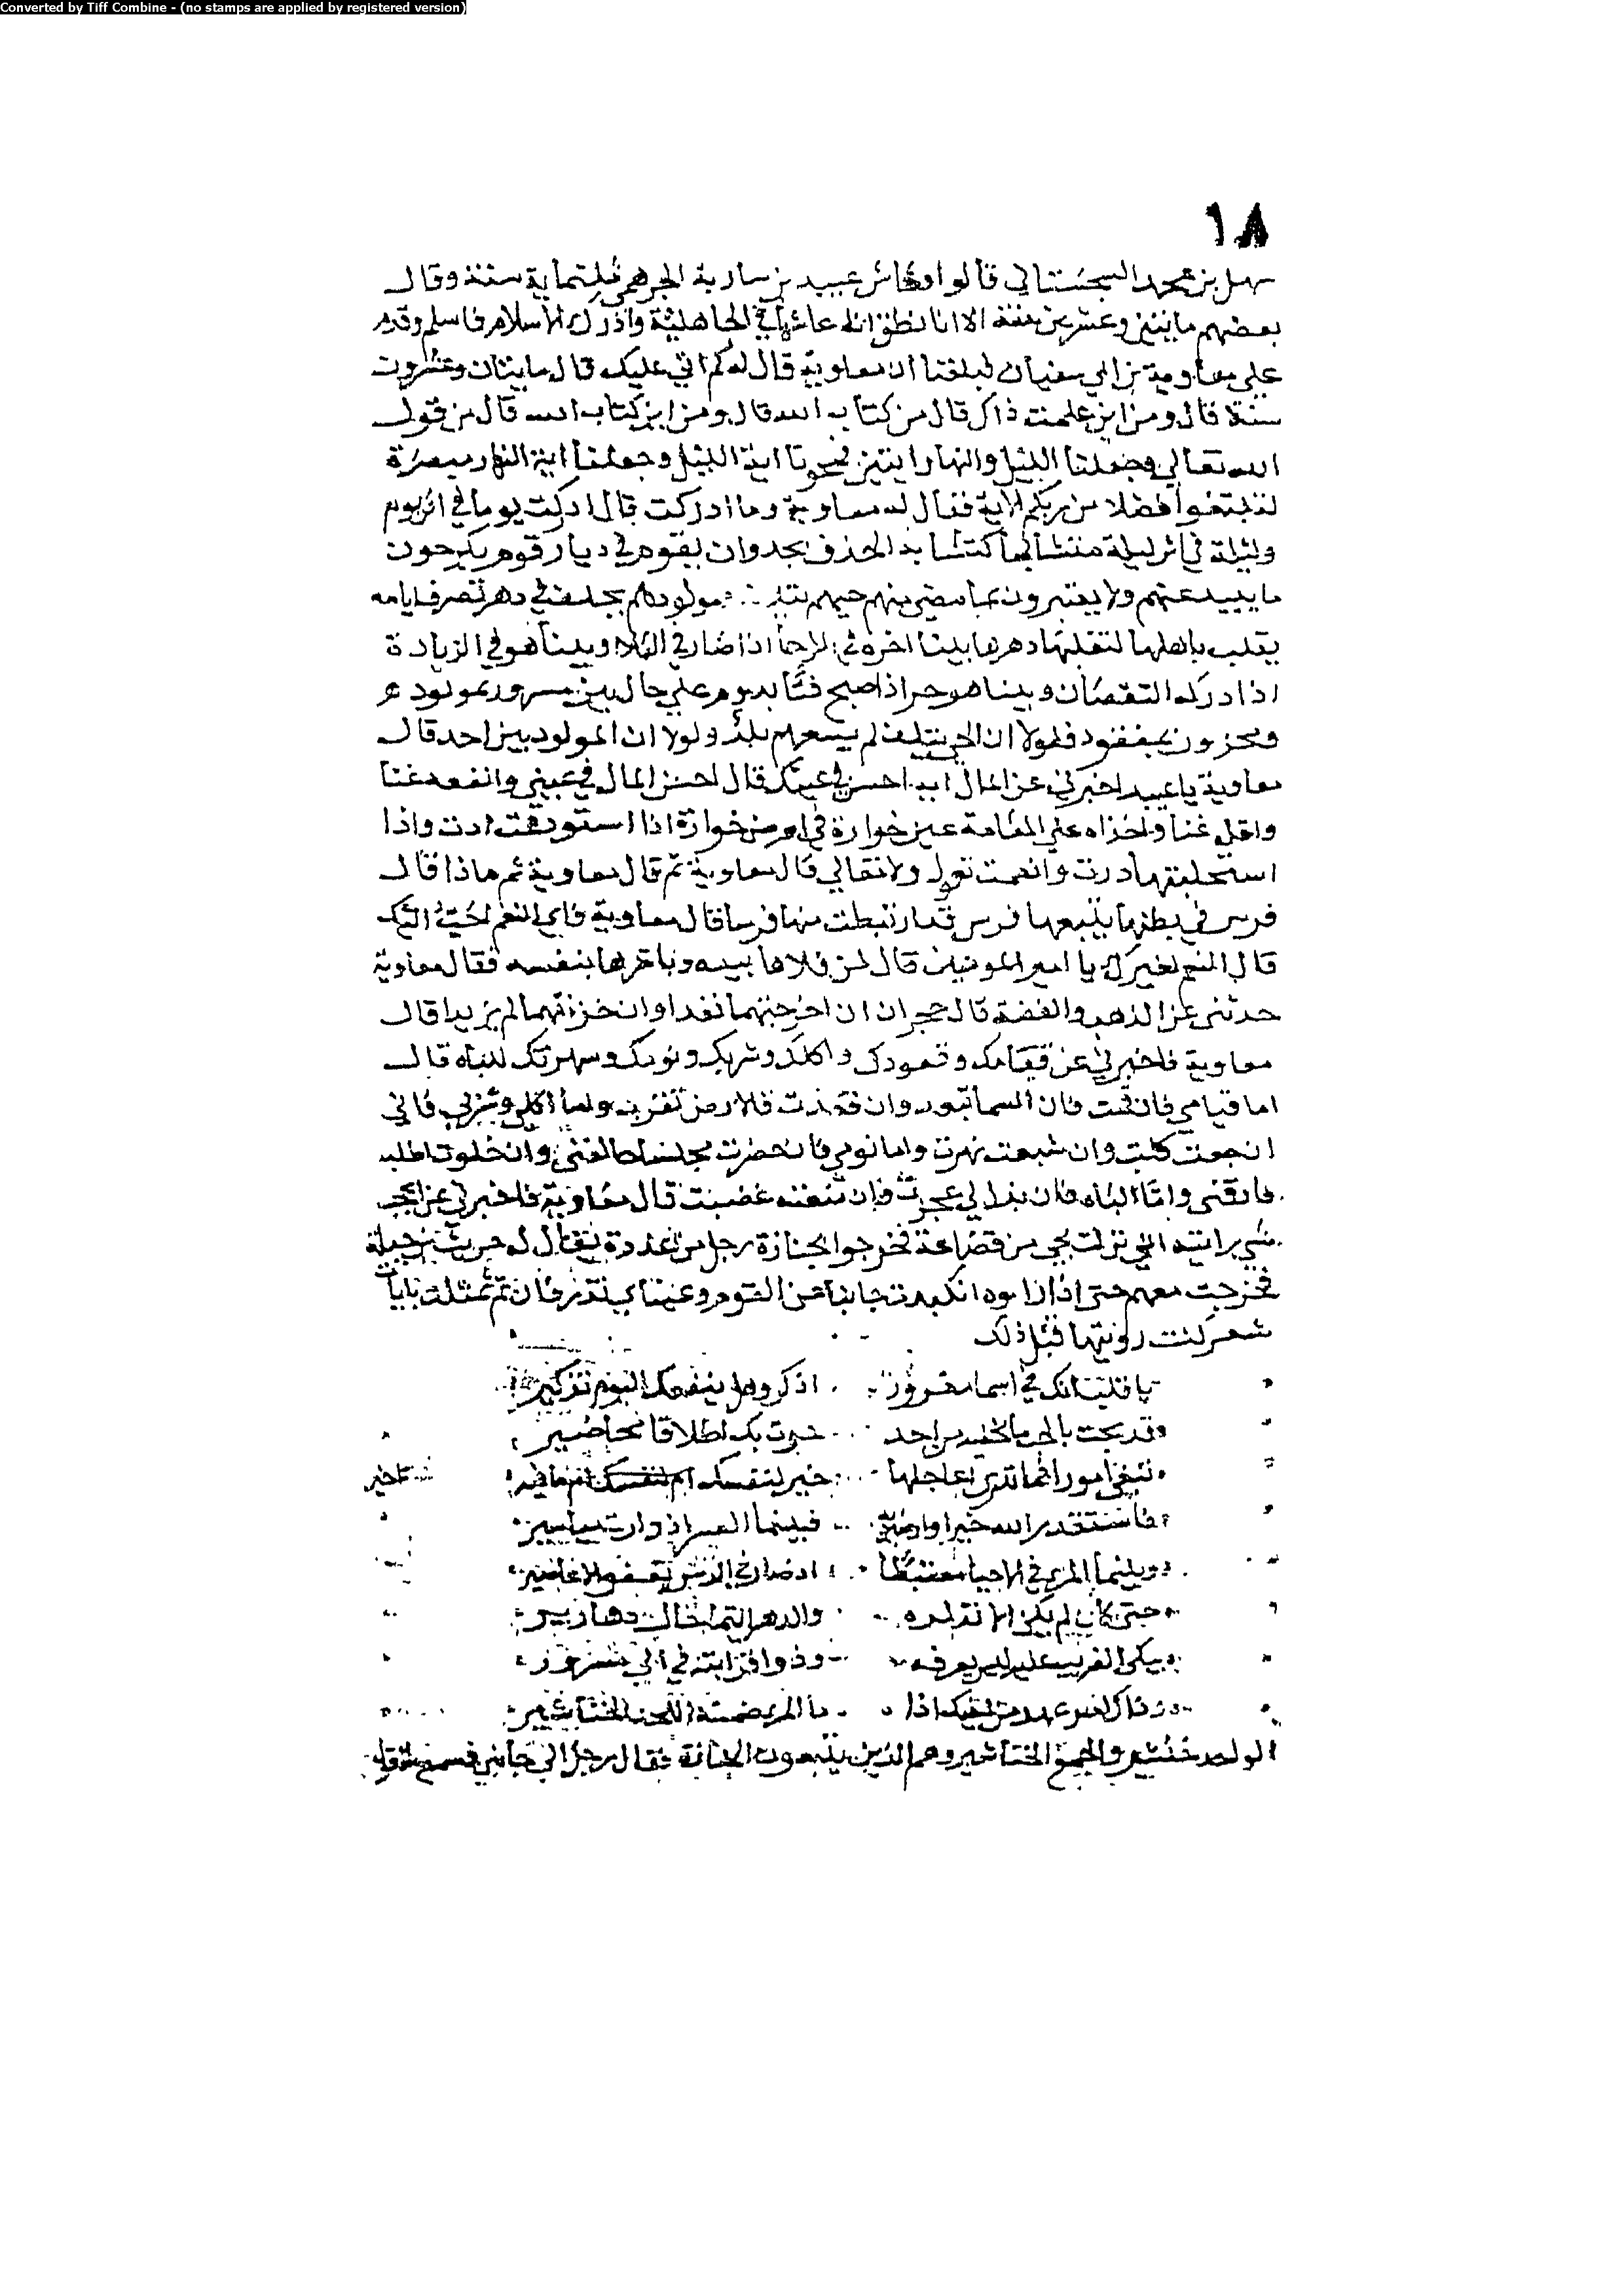 Converted by Tiff Combine - (no stamps are applied by registered version)
١٨
سهل بن محمد السجستاني قالوا وعاش عبيد بن سارية الجرهمي ثلثماية سنة وقال
بعضهم مايتين وعشرين سنة الا انا نظن انه عاشها في الجاهلية وادرك الاسلام فاسلم وقدم
علي معاوية بن ابي سفيان فبلغنا ان معاوية قال له كم اتي عليك قال مايتان وعشرون
سنة قال ومن اين علمت ذاك قال من كتاب الله قال ومن اين كتاب الله قال من قول
الله تعالي وجعلنا الليل والنهار ايتين فمحونا اية الليل وجعلنا اية النهار مبصرة
لتبتغوا فضلا من ربكم الاية فقال له معاوية وما ادركت قال ادركت يوما في اثر يوم
وليلة في اثر ليلة متشابها كتشابه الحذف يحدوان بقوم في ديار قوم يكدحون
ما يبيد عنهم ولا يعتبرون بما مضي منهم حيهم يتلف ومولودهم يخلف في دهر تصرف ايامه
يقلب باهلها لتقلبها دهرها بينا اخوه في الرخا اذا صار في البلا وبينا هو في الزيادة
اذا دركه النقصان وبينا هو حر اذا اصبح لا يدوم علي حال بين مسرور بمولود
ومحزون بمفقود فلولا ان الحي يتلف لم يسعهم بلد ولولا ان المولود بين احد قال
معاوية يا عبيد اخبرني عن المال ايه احسن في عينك قال احسن المال في عيني وانفعه غنا
واقل غنا واجزاه علي العامة عين خوارة في ارض خوارة اذا استودعت ادت واذا
استحلبتها درت وانعمت تعول ولا تعالي قال معاوية ثم قال معاوية ثم ماذا قال
فرس في بطنها يتبعها فرس قد ارتبطت منها فرسا قال معاوية فاي النعم احب اليك
قال النعم لغيرك يا امير المومنين قال لمن فلاها بيده وباشرها بنفسه فقال معاوية
حدثني عن الذهب والفضة قال حجران ان اخرجتهما نفدا وان خزنتهما لم يزيدا قال
معاوية فاخبرني عن قيامك وقعودك واكلك وشربك ونومك وسهرتك للباه قال
اما قيامي فان قمت فان السما تبعد وان قعدت فالارض تقرب واما اكلي وشربي فاني
ان جعت كلبت وان شبعت بهرت واما نومي فان حضرت مجلسا حالفني وان خلوت اطلبه
فارقني واما الباه فان بذل لي عجزت وان منعته غضبت قال معاوية فاخبرني عن اعجب
شي رايته اني نزلت بحي من قضاعة فخرجوا بجنازة رجل من عذرة يقال له حريث بن جبلة
فخرجت معهم حتي اذا واروه انتبذت جانبا عن القوم وعيناي تذرفان ثم تمثلت بابيات
شعر كنت رويتها قبل ذلك
يا قلب انك في اسما مغرور اذكر وهل ينفعك اليوم تذكير
وقد بحت بالحب ما تخفيه من احد جرت بك اطلاقا محاضير
تبغي امورا فما تدري اعاجلها خير لنفسك ام ما فيه
تاخير
فاستقدر الله خيرا وارضين به فبينما العسر اذ دارت مياسير
وبينما المرء في الاحيا مغتبطا اذ صار في الرمس تعفوه الاعاصير
حتى كان لم يكن الا تذكره والدهر ايتما حال دهارير
يبكي الغريب عليه ليس يعرفه وذو قرابته في الحي مسرور
وذاك اخر عهد من اخيك اذا ما المرء ضمنه اللحد الخناشير
الواحد خنشير والجمع الخناشير وهم الذين يتبعون الجنازة فقال رجل الي جانبي يسمع ما اقول